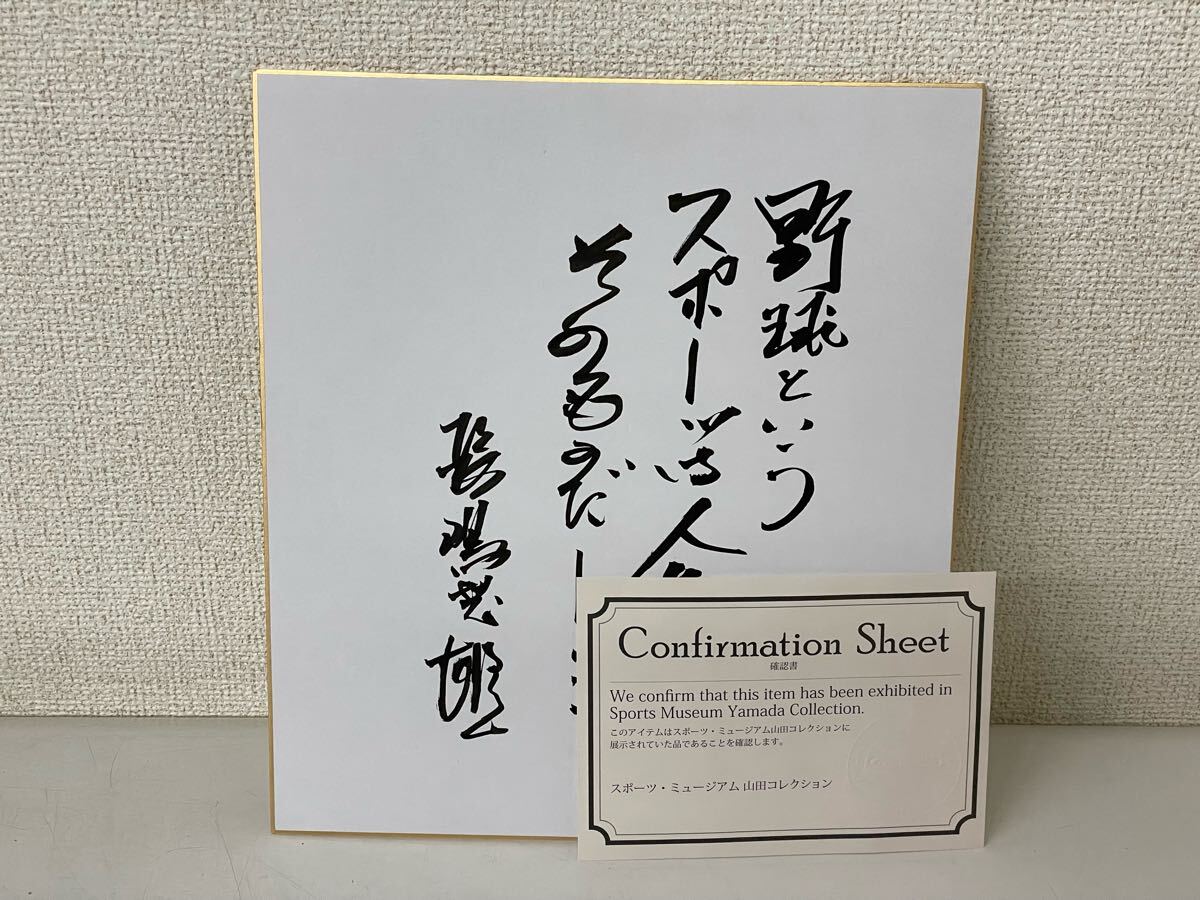 野球という
スポーツは人
そのものだ
長嶋茂雄
Confirmation Sheet
確認書
We confirm that this item has been exhibited in
Sports Museum Yamada Collection.
このアイテムはスポーツ・ミュージアム山田コレクションに
展示されていた品であることを確認します。
スポーツ・ミュージアム 山田コレクション